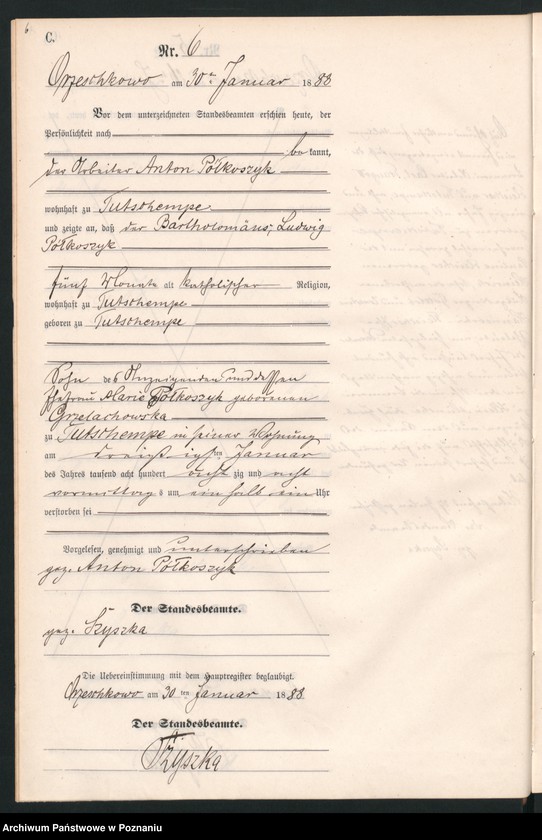 6
C.
Nr. 6
Orzeschkowo am 30ten Januar 1888
Vor dem unterzeichneten Standesbeamten erschien heute, der
Persönlichkeit nach
bekannt,
der Arbeiter Anton Połkoszyk
wohnhaft zu Tutschempe
und zeigte an, daß der Bartholomäus, Ludwig
Połkoszyk
fünf Monate alt katholischer Religion,
wohnhaft zu Tutschempe
geboren zu Tutschempe
Sohn des Anzeigenden und dessen
Ehefrau Marie Połkoszyk geborenen
Grzelachowska
zu Tutschempe in seiner Wohnung
am dreißigsten Januar
des Jahres tausend acht hundert achtzig und acht
vormittags um ein halb ein Uhr
verstorben sei
Vorgelesen, genehmigt und unterschrieben
gez. Anton Połkoszyk
Der Standesbeamte.
gez. Szyszka
Die Uebereinstimmung mit dem Hauptregister beglaubigt.
Orzeschkowo am 30ten Januar 1888
Der Standesbeamte.
Szyszka
Archiwum Państwowe w Poznaniu